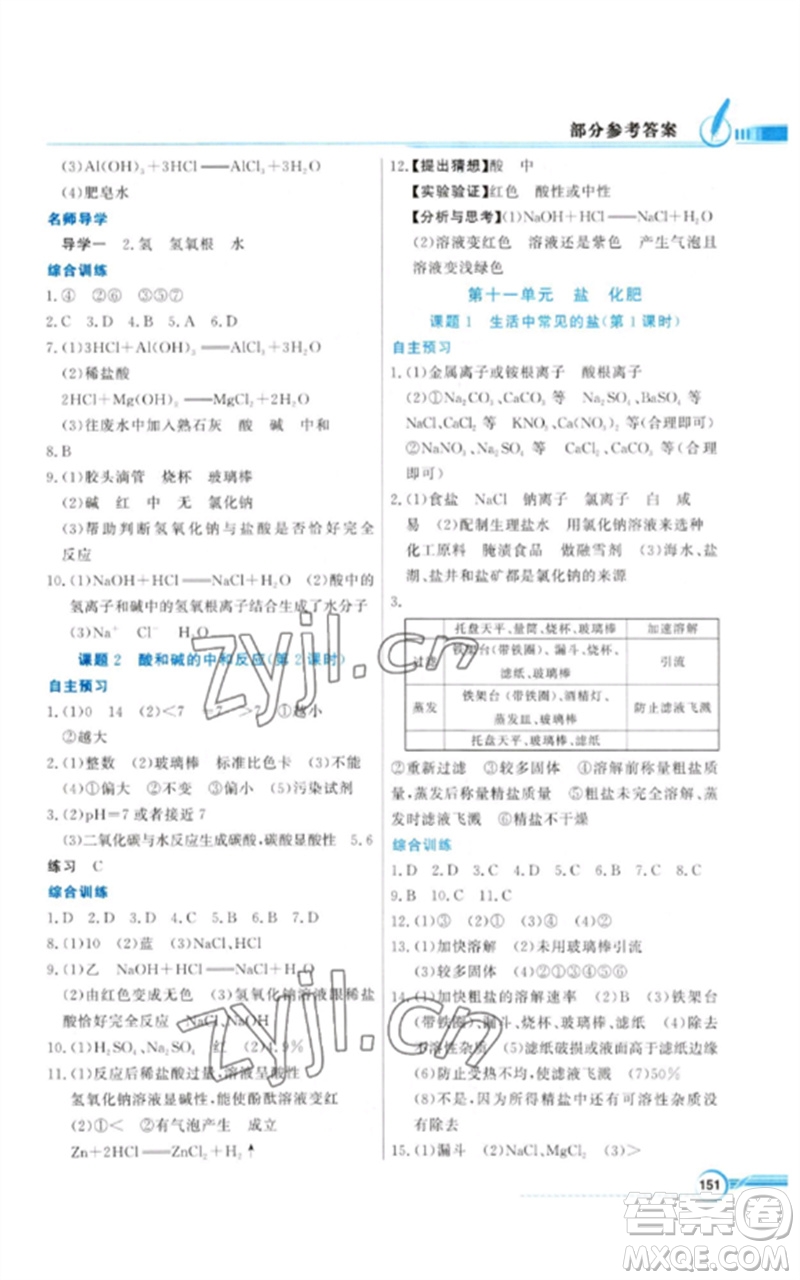 部分参考答案
(3)Al(OH)₃+3HCl══AlCl₃+3H₂O
(4)肥皂水
名师导学
导学一 2.氢 氢氧根 水
综合训练
1.④ ②⑥ ③⑤⑦
2.C 3.D 4.D 5.D 6.A
7.(1)3HCl+Al(OH)₃══AlCl₃+3H₂O
(2)稀盐酸
2HCl+Mg(OH)₂══MgCl₂+2H₂O
(3)往废水中加入熟石灰 酸 碱 中和
8.B
9.(1)胶头滴管 烧杯 玻璃棒
(2)碱 红 中 无 氯化钠
(3)帮助判断氢氧化钠与盐酸是否恰好完全
反应
10.(1)NaOH+HCl══NaCl+H₂O (2)酸中的
氢离子和碱中的氢氧根离子结合生成了水分子
(3)Na⁺ Cl⁻ H₂O
课题2 酸和碱的中和反应(第2课时)
自主预习
1.(1)0 14 (2)<7 =7 >7 ①越小
②越大
2.(1)整数 (2)玻璃棒 标准比色卡 (3)不能
(4)①偏大 ②不变 ③偏小 (5)污染试剂
3.(2)pH=7或者接近7
(3)二氧化碳与水反应生成碳酸,碳酸显酸性 5.6
练习 C
综合训练
1.D 2.D 3.B 4.B 5.D 6.D 7.D
8.(1)10 (2)蓝 (3)NaCl、HCl
9.(1)乙 NaOH+HCl══NaCl+H₂O
(2)由红色变成无色 (3)氢氧化钠溶液跟稀盐
酸恰好完全反应 NaCl、NaOH
10.(1)H₂SO₄、Na₂SO₄ 红 (2)4.9%
11.(1)反应后稀盐酸过量,溶液呈酸性
氢氧化钠溶液显碱性,能使酚酞溶液变红
(2)①< ②有气泡产生 成立
Zn+2HCl══ZnCl₂+H₂↑
12.【提出猜想】酸 中
【实验验证】红色 酸性或中性
【分析与思考】(1)NaOH+HCl══NaCl+H₂O
(2)溶液变红色 溶液还是紫色 产生气泡且
溶液变浅绿色
第十一单元 盐 化肥
课题1 生活中常见的盐(第1课时)
自主预习
1.(1)金属离子或铵根离子 酸根离子
(2)①Na₂CO₃、CaCO₃等 Na₂SO₄、BaSO₄等
NaCl、CaCl₂等 KNO₃、Ca(NO₃)₂等(合理即可)
②NaNO₃、Na₂SO₄等 CaCl₂、CaCO₃等(合理
即可)
2.(1)食盐 NaCl 钠离子 氯离子 白 咸
易 (2)配制生理盐水 用氯化钠溶液来选种
化工原料 腌渍食品 做融雪剂 (3)海水、盐
湖、盐井和盐矿都是氯化钠的来源
3.
托盘天平、量筒、烧杯、玻璃棒 加速溶解
过滤 铁架台(带铁圈)、漏斗、烧杯、玻璃棒、滤纸 引流
蒸发 铁架台(带铁圈)、酒精灯、蒸发皿、玻璃棒 防止滤液飞溅
托盘天平、玻璃棒、滤纸
②重新过滤 ③较多固体 ④溶解前称量粗盐质
量,蒸发结晶后称量精盐质量 ⑤粗盐未完全溶解、蒸
发时滤液飞溅 ⑥精盐不干燥
综合训练
1.D 2.D 3.D 4.C 5.A 6.B 7.B 8.C
9.B 10.C 11.C
12.(1)③ (2)① (3)④ (4)②
13.(1)加快溶解 (2)未用玻璃棒引流
(3)较多固体 (4)②①③④⑤
14.(1)加快粗盐的溶解速率 (2)B (3)铁架台
(带铁圈)、漏斗、烧杯、玻璃棒、滤纸 (4)除去
不溶性杂质 (5)滤纸破损或滤液高于滤纸边缘
(6)防止受热不均,使滤液飞溅 (7)50%
(8)不是 因为所得精盐中的可溶性杂质没
有除去
15.(1)漏斗 (2)NaCl、MgCl₂ (3)>
151
zyjl.cn
zyjl.cn
答案圈
MXQE.COM